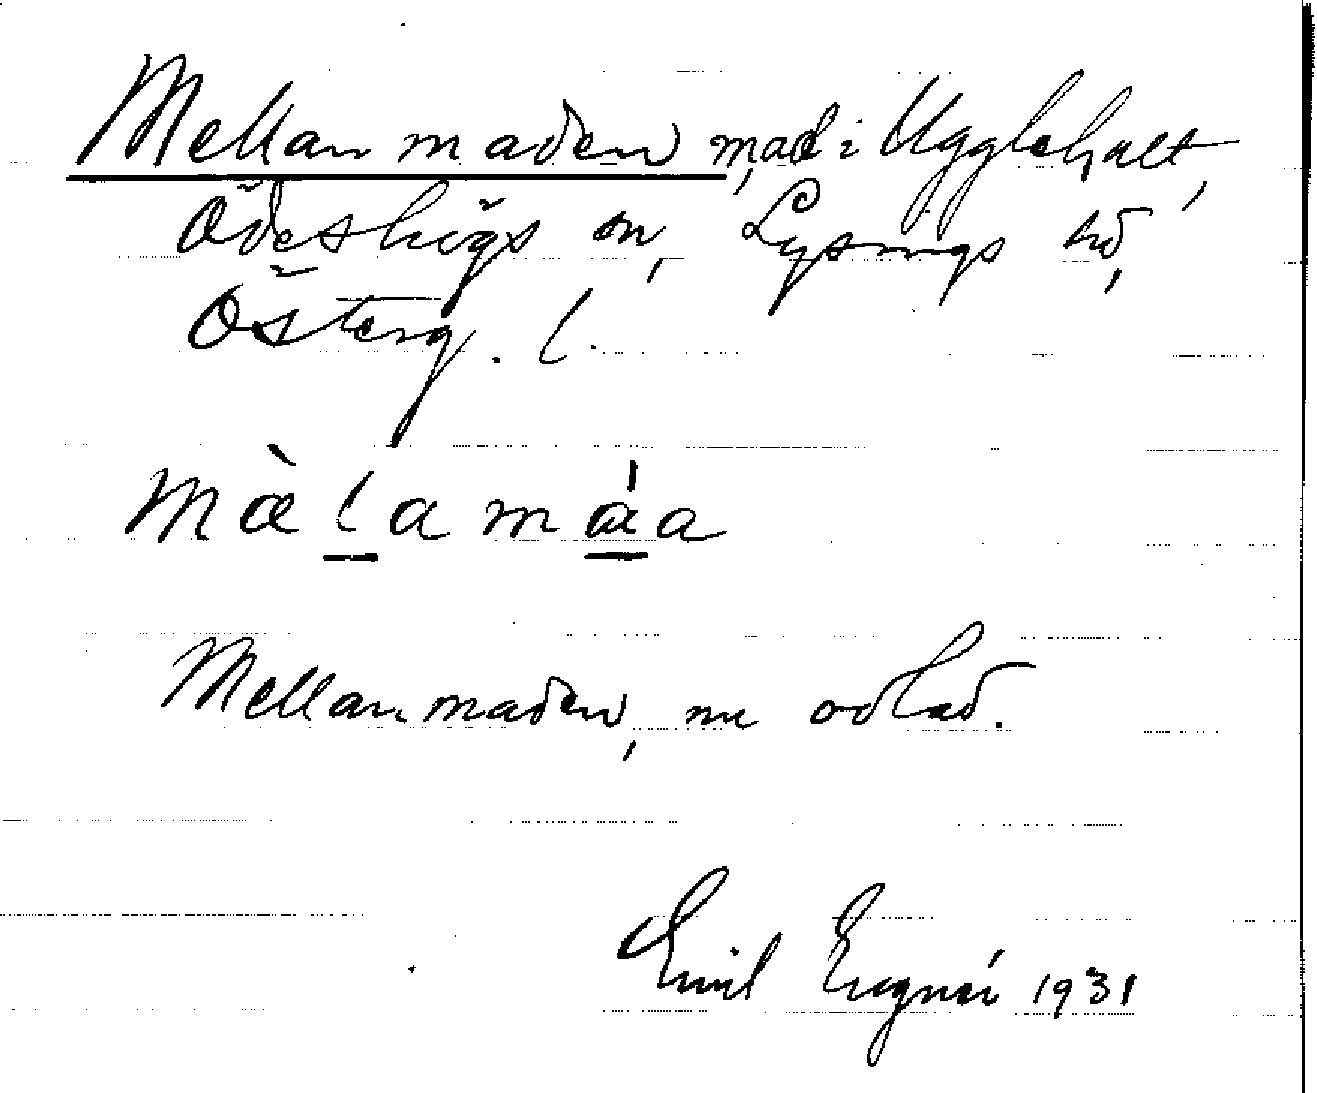 Mellanmaden, mad i Ugglehult,
Ödeshögs sn, Lysings hd,
Österg. l.
mæ̀lamáa
Mellanmaden, nu odlad.
Emil 1931